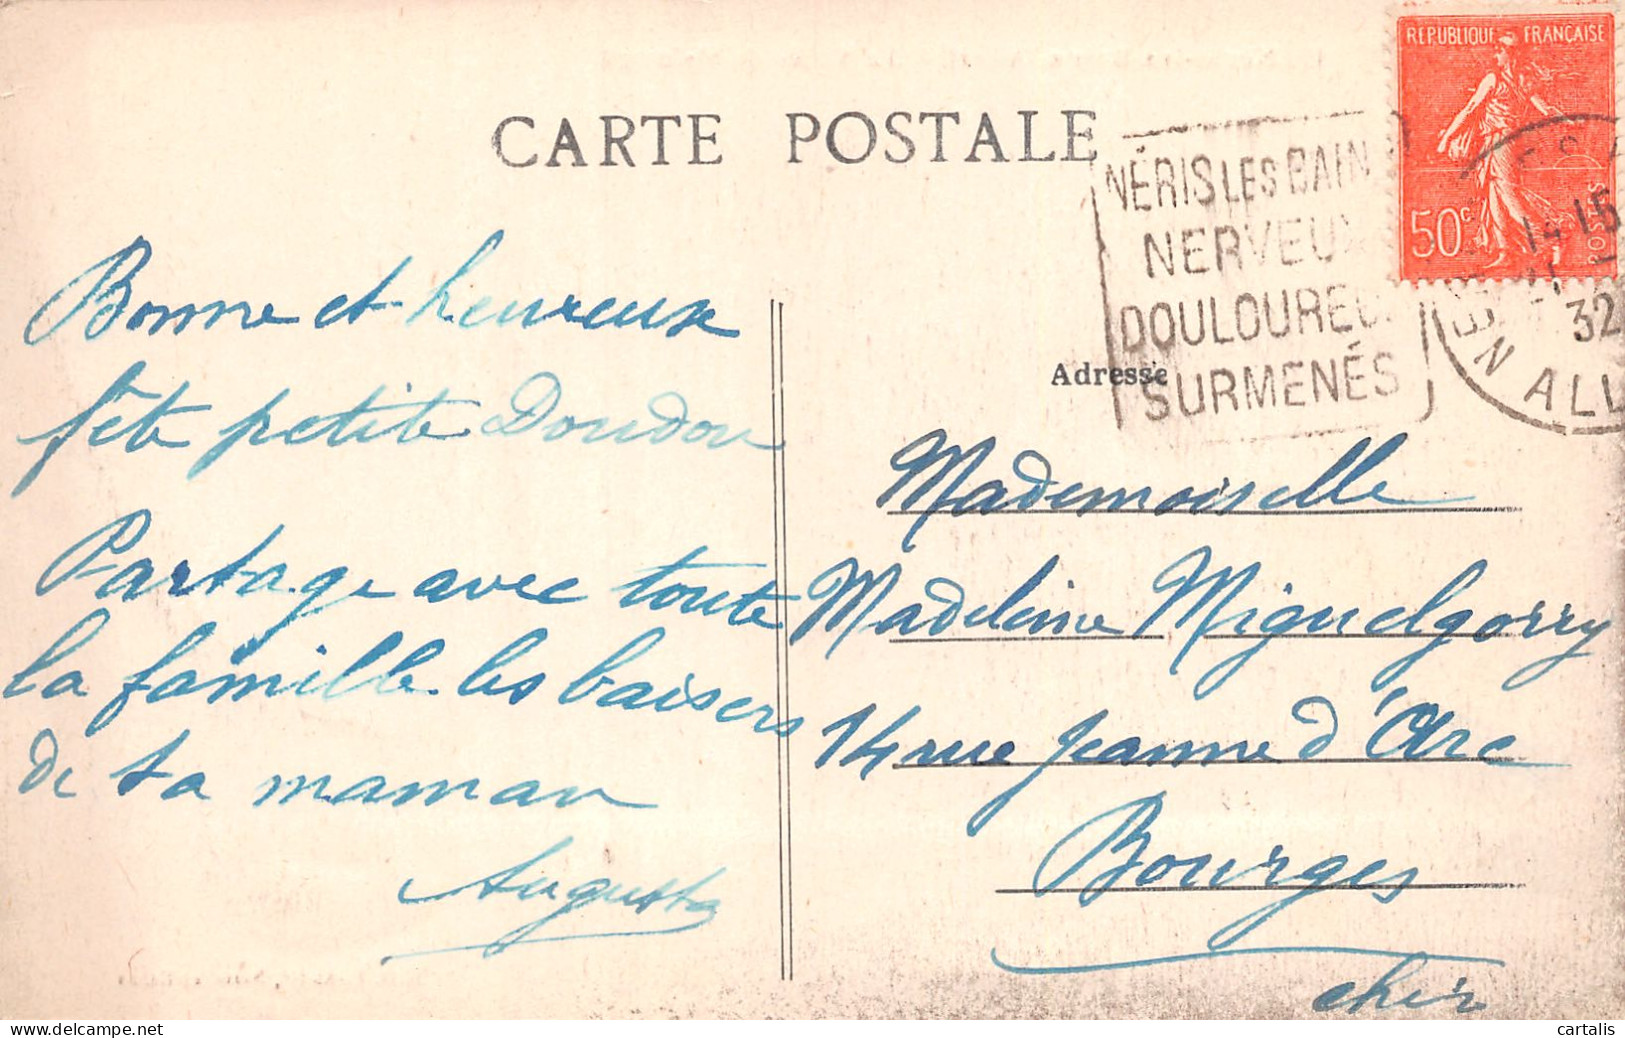 CARTE POSTALE
RÉPUBLIQUE FRANÇAISE
50c
POSTES
NÉRIS LES BAIN
NERVEUX
DOULOUREU
SURMENÉS
14 15
32
EN ALL
Adresse
Bonne et heureuse
fête petite Doudou
Partage avec toute
la famille les baisers
de ta maman
Augusta
Mademoiselle
Madeleine Miguelgorry
14 rue Jeanne d'Arc
Bourges
Cher
cartalis